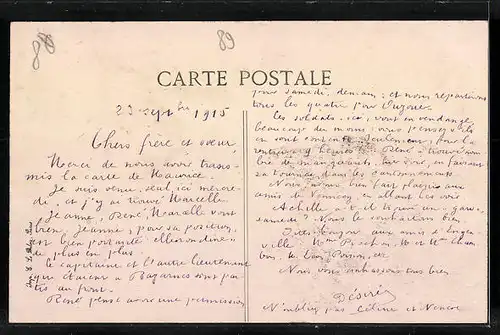 88
89
CARTE POSTALE
23 septbre 1915
Chers frère et sœur,
Merci de nous avoir trans-
mis la carte de Maurice.
Je suis venu, seul, ici mercre-
di, et j'y ai trouvé Marcelle.
Jeanne, René, Marcelle vont
bien. Jeanne, pour sa position,
est bien portante,
de plus en plus.
le capitaine et l'autre lieutenant
qui étaient à Bazarnes sont par-
tis au front.
René pense avoir une permission
pour samedi, demain, et nous repartirons
tous les quatre pour
Les soldats, ici, vont en vendange,
beaucoup du moins; vous pensez s'ils
en sont contents. Seulement, pour la
rentrée à heures, René trouve com-
bien de manquants, hier soir, en faisant
sa tournée dans les cantonnements.
Nous avons bien fait plaisir aux
amis de en allant les voir
Achille, est-il venu en "gare",
samedi? Nous le souhaitons bien.
Bonjour aux amis
ville, Mme et Mme
bon, le
Nous vous embrassons tous bien
Désiré
N'oubliez pas Céline et